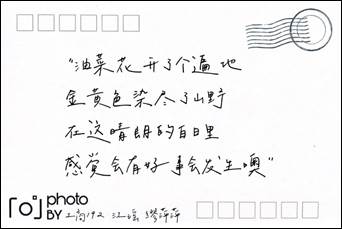 "油菜花开了个遍地
金黄色染尽了山野
在这晴朗的白日里
感觉会有好事会发生噢"
「o」photo
BY 工商192 江瑶 缪萍萍